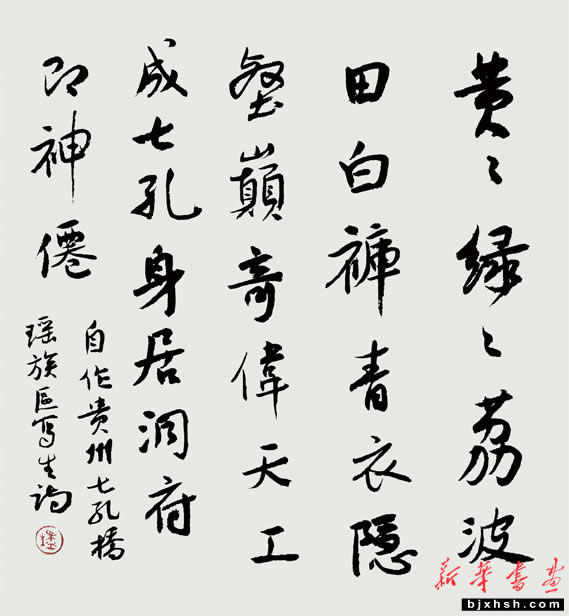 黄〻绿〻荔波
田白裤青衣隐
壑巅奇伟天工
成七孔身居洞府
即神僊
自作贵州七孔桥
瑶族区写生诗
新华书画
bjxhsh.com